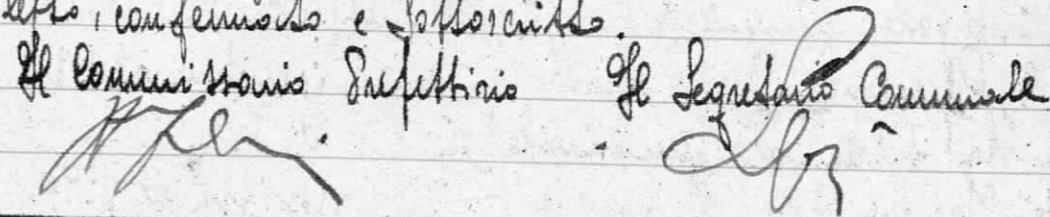 letto, confermato e sottoscritto.
Il Commissario Prefettizio Il Segretario Comunale